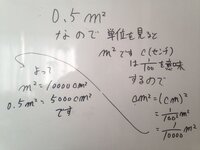 0.5m²
なので 単位を見ると
m²です c(センチ)
は1/100を意味
するので
cm²=(cm)²
=1/100² m²
=1/10000 m²
よって
m²=10000cm²
0.5m²=5000cm²
です